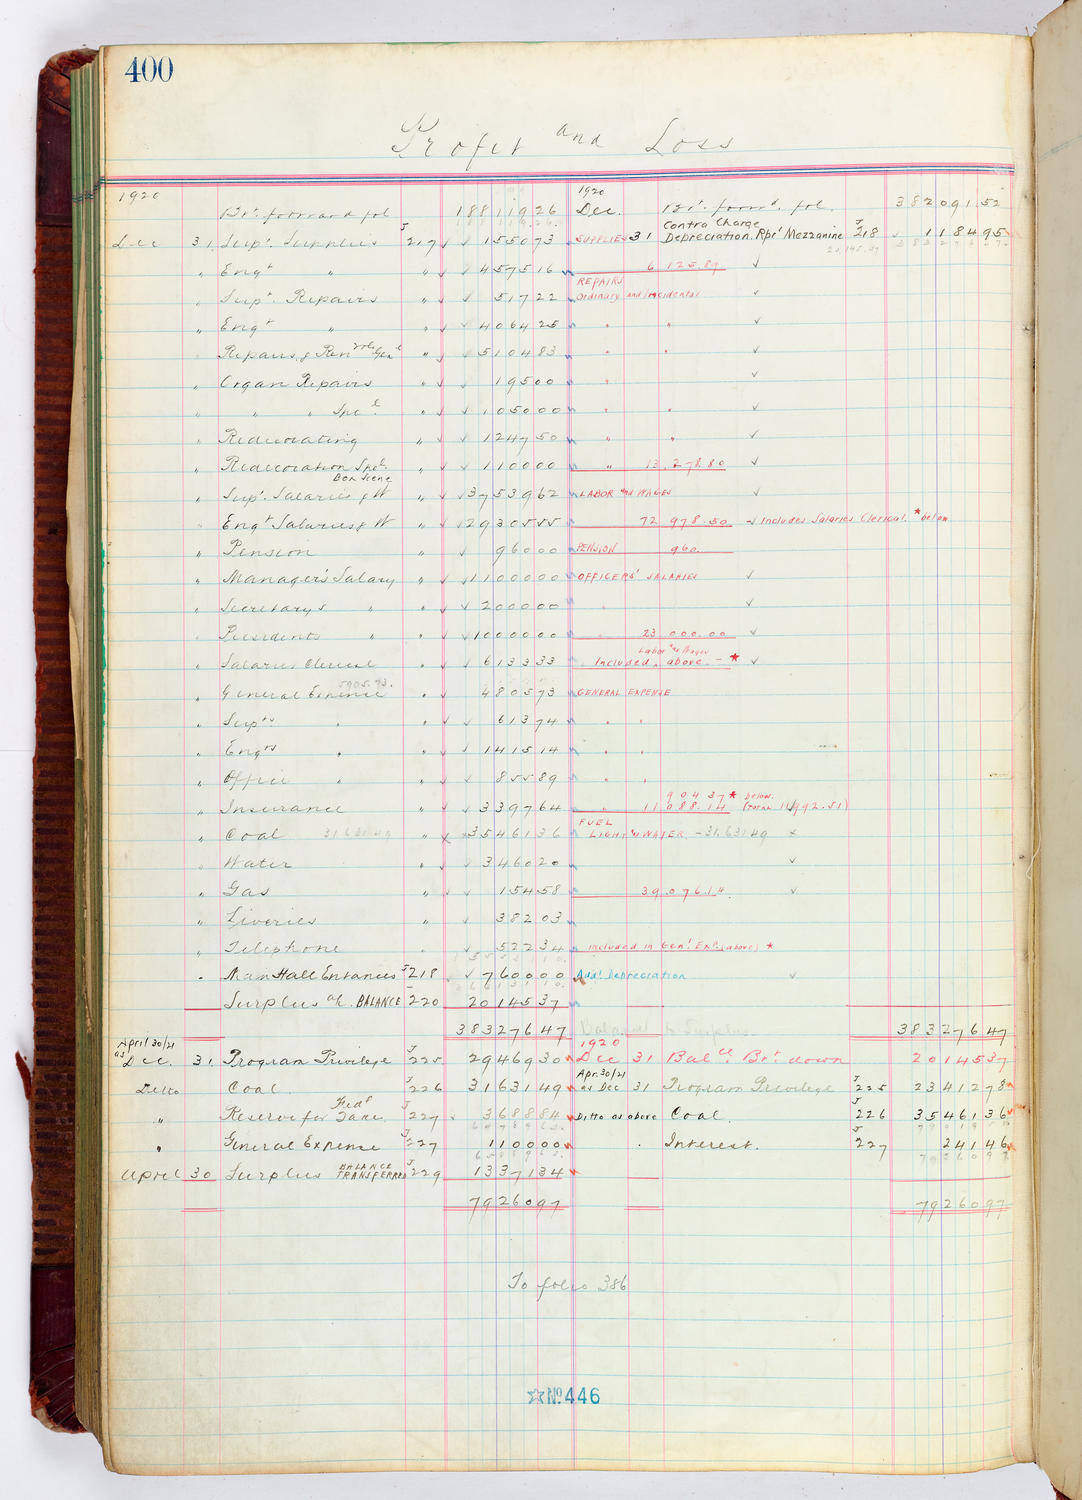 400
Profit and Loss
1920 1920
Brt. forward fol 18811926 Dec. Brt. forwd. fol. 38209152
Contra Charge
Dec 31 Supt. Supplies J 217 155073 SUPPLIES 31 Depreciation. Rprs Mezzanine J 218 118495
20,145.37 38327647
" Engr " " 457516 6 125.89
REPAIRS
" Supt. Repairs " 51722 Ordinary and Incidental
" Engr " " 406425 " "
" Repairs & Renwls Genl " 510483 " "
" Organ Repairs " 19500 "
" " " Spcl " 105000 " "
" Redecorating " 124750 " "
" Redecoration Spcl. " 110000 " 13,278.80
Box Scene
" Supt. Salaries & W " 3753962 LABOR and WAGES
" Engr Salaries & W " 2930555 72 978.50 Includes Salaries Clerical. * below
" Pension " 96000 PENSION 960.
" Manager's Salary " 1100000 OFFICERS' SALARIES
" Secretarys " " 200000 "
" Presidents " " 1000000 " 23 000.00
Labor and Wages
" Salaries Clerical " 613333 Included above - *
5905.73.
" General Expense " 480573 GENERAL EXPENSE
" Supts " " 61374 " "
" Engrs " " 141514 " "
" Office " " 85589 " "
904 37 * below.
" Insurance " 339764 " 11 088.14 (TOTAL 11,992.51)
FUEL
" Coal 31,631.49 " 3546136 LIGHT & WATER - 31,631.49
" Water " 346020
" Gas " 15458 39,076.14
" Liveries " 38203
" Telephone " 52234 Included in Genl. EXP. (above) *
" Main Hall Entances J 218 760000 Addl Depreciation
Surplus a/c. BALANCE 220 2014537
38327647 Balance to Surplus 38327647
April 30/21 1920
as Dec. 31 Program Privilege J 225 2946930 Dec 31 Balce. Brt down 2014537
Apr. 30/21
Ditto Coal J 226 3163149 as Dec 31 Program Privilege J 225 2341278
" Reserve for Fedl Taxes J 227 368884 Ditto as above Coal J 226 3546136
" General Expense J 227 110000 " Interest. J 227 24146
April 30 Surplus BALANCE TRANSFERRED J 229 1337134
7926097 7926097
To folio 386
☆ No. 446